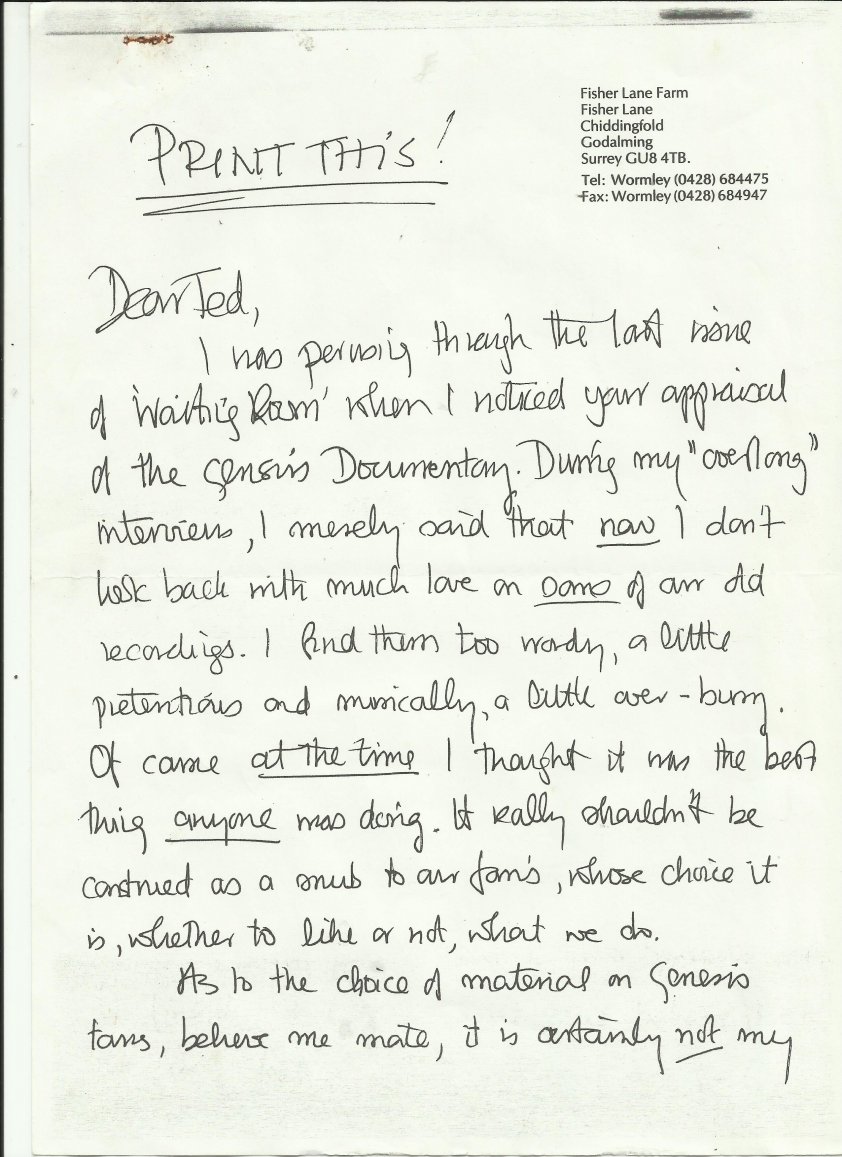 Fisher Lane Farm
Fisher Lane
Chiddingfold
Godalming
Surrey GU8 4TB.
Tel: Wormley (0428) 684475
Fax: Wormley (0428) 684947
PRINT THiS!
Dear Ted,
I was perusing through the last issue
of 'Waiting Room' when I noticed your appraisal
of the Genesis Documentary. During my "overlong"
interviews, I merely said that now I don't
look back with much love on some of our old
recordings. I find them too wordy, a little
pretentious and musically, a little over-busy.
Of course at the time I thought it was the best
thing anyone was doing. It really shouldn't be
construed as a snub to our fans, whose choice it
is, whether to like or not, what we do.
As to the choice of material on Genesis
tours, believe me mate, it is certainly not my